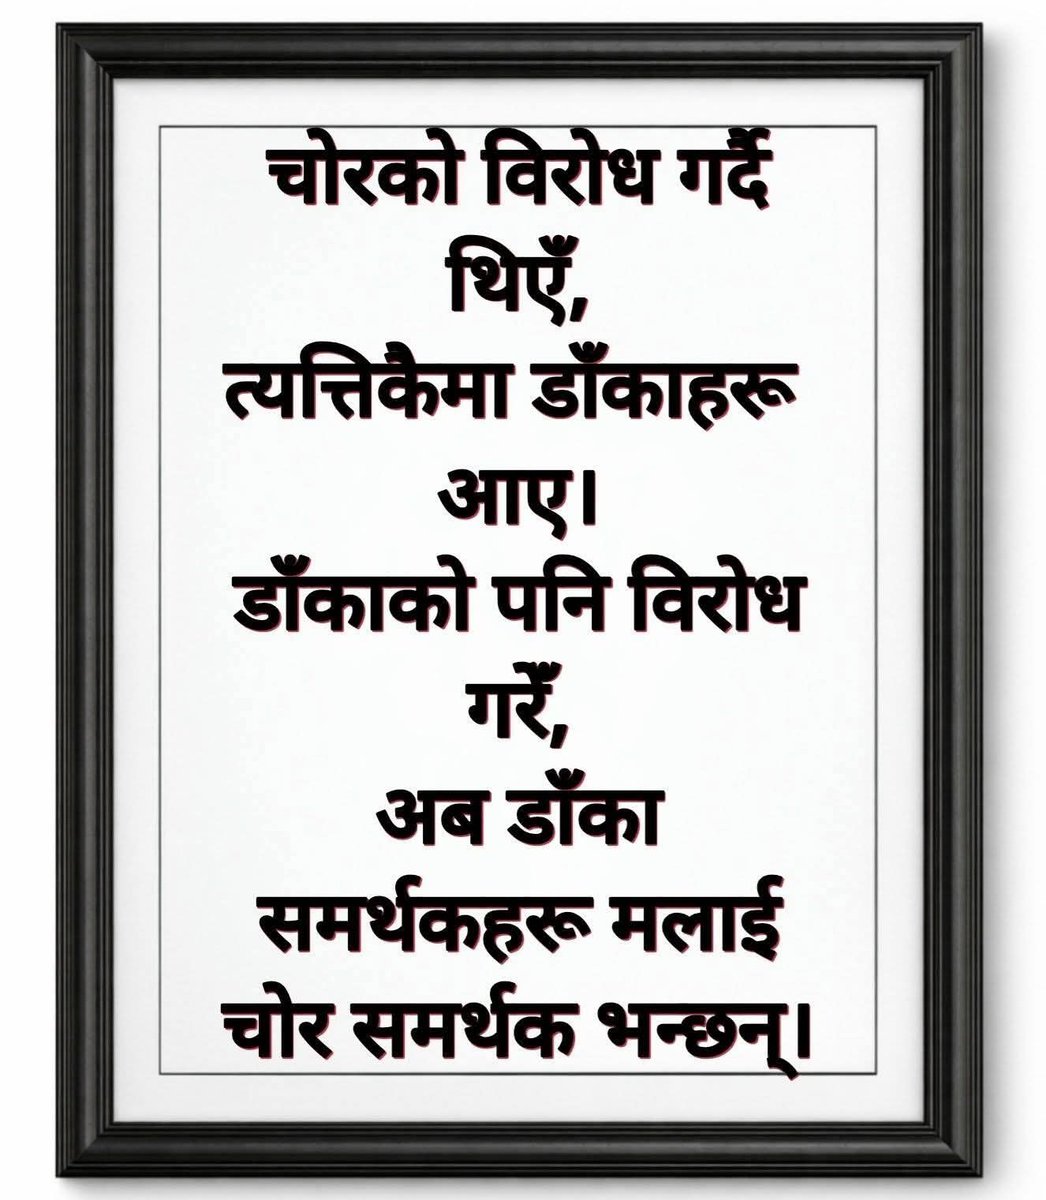 चोरको विरोध गर्दै
थिएँ,
त्यत्तिकैमा डाँकाहरू
आए।
डाँकाको पनि विरोध
गरेँ,
अब डाँका
समर्थकहरू मलाई
चोर समर्थक भन्छन्।